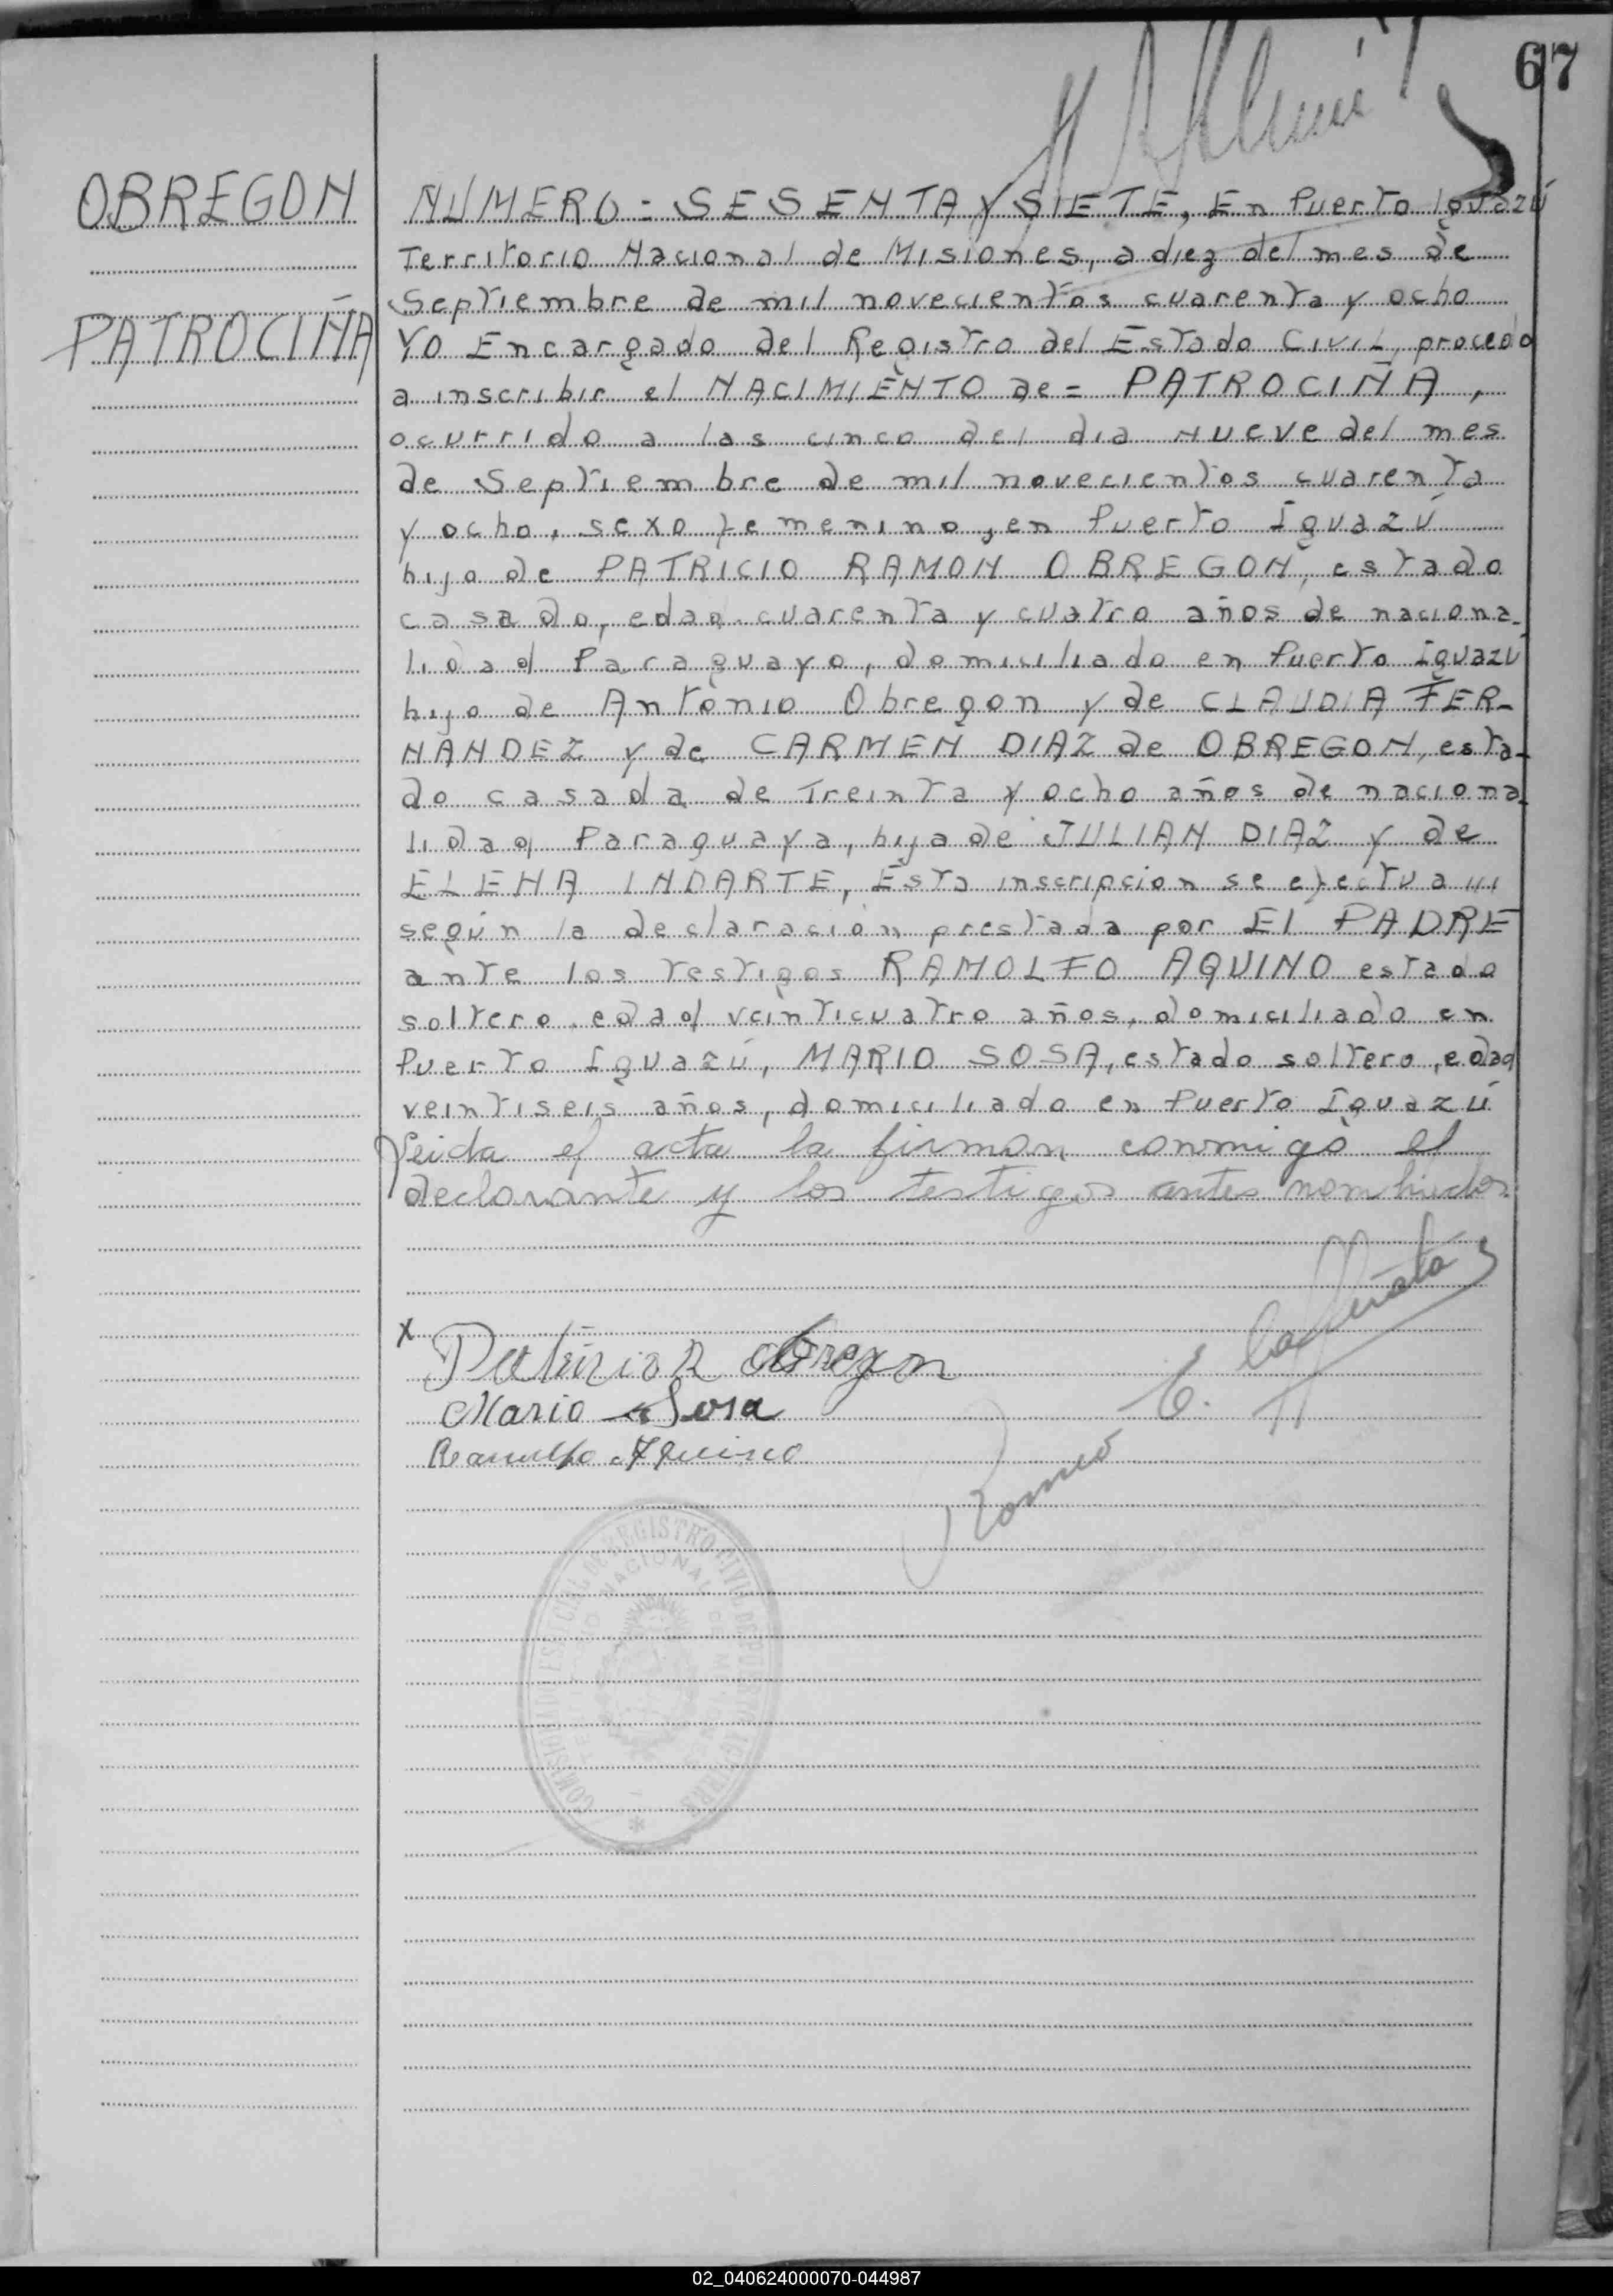 67
OBREGON
PATROCIÑA
NUMERO = SESENTA Y SIETE, En Puerto Iguazú
Territorio Nacional de Misiones, a diez del mes de
Septiembre de mil novecientos cuarenta y ocho
Yo Encargado del Registro del Estado Civil, procedo
a inscribir el NACIMIENTO de = PATROCIÑA,
ocurrido a las cinco del dia nueve del mes
de Septiembre de mil novecientos cuarenta
y ocho, sexo femenino, en Puerto Iguazú
hijo de PATRICIO RAMON OBREGON, estado
casado, edad cuarenta y cuatro años de naciona-
lidad Paraguayo, domiciliado en Puerto Iguazú
hijo de Antonio Obregon y de CLAUDIA FER-
NANDEZ y de CARMEN DIAZ de OBREGON, esta-
do casada de Treinta y ocho años de naciona-
lidad Paraguaya, hija de JULIAN DIAZ y de
ELENA INDARTE, Esta inscripcion se efectua
según la declaración prestada por El PADRE
ante los testigos RAMOLFO AQUINO estado
soltero, edad veinticuatro años, domiciliado en
Puerto Iguazú, MARIO SOSA, estado soltero, edad
veintiseis años, domiciliado en Puerto Iguazú
Leida el acta la firman conmigo el
declarante y los testigos antes nombrados
x
Patricio R Obregon
Mario Sosa
Ramulfo Aquino
Romeo E.
COMISION DEL REGISTRO CIVIL DE PUERTO
TERRITORIO NACIONAL DE MISIONES
02_040624000070-044987